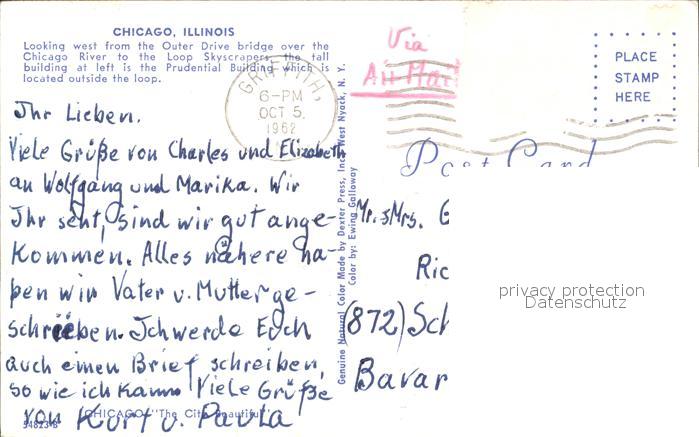 CHICAGO, ILLINOIS
Looking west from the Outer Drive bridge over the
Chicago River to the Loop Skyscrapers, the tall
building at left is the Prudential Building which is
located outside the loop.
GRIFFITH,
6-PM
OCT 5.
1962
Via
Air Mail
PLACE
STAMP
HERE
Post Card
Ihr Lieben.
Viele Grüße von Charles und Elizabeth
an Wolfgang und Marika. Wir
Ihr seht, sind wir gut ange-
kommen. Alles nähere ha-
ben wir Vater u. Mutter ge-
schrieben. Ich werde Euch
auch einen Brief schreiben,
so wie ich kann. Viele Grüße
von Kurt u. Paula
CHICAGO "The City Beautiful"
54823-B
Genuine Natural Color Made by Dexter Press, Inc., West Nyack, N. Y.
Color by: Ewing Galloway
Mr. & Mrs. G
Ric
(872) Sch
Bavar
privacy protection
Datenschutz